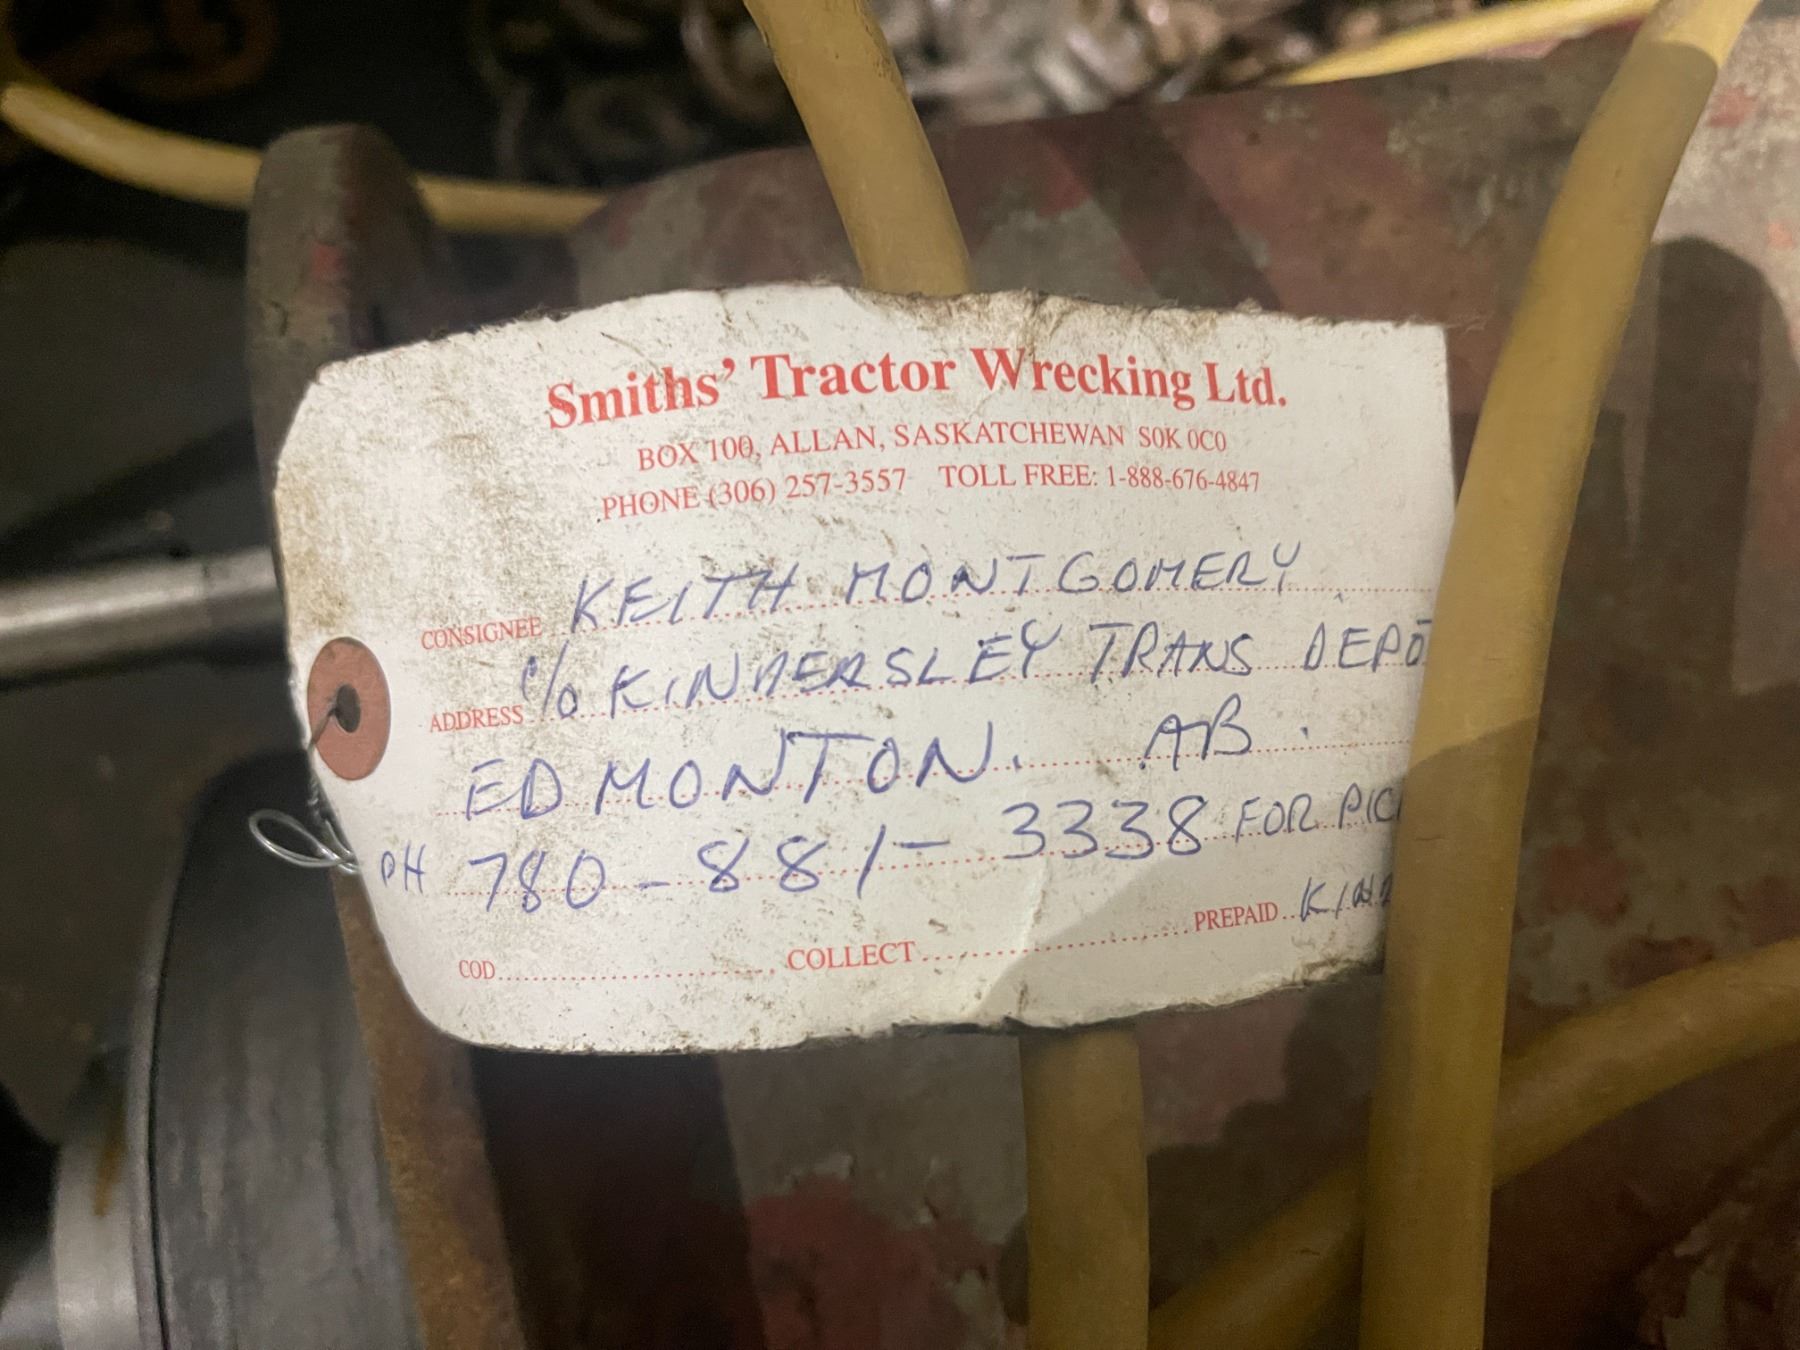 Smiths' Tractor Wrecking Ltd.
BOX 100, ALLAN, SASKATCHEWAN S0K 0C0
PHONE (306) 257-3557 TOLL FREE: 1-888-676-4847
CONSIGNEE KEITH MONTGOMERY
ADDRESS c/o KINDERSLEY TRANS DEPO
EDMONTON. AB.
PH 780-881-3338 FOR PIC
COD COLLECT PREPAID